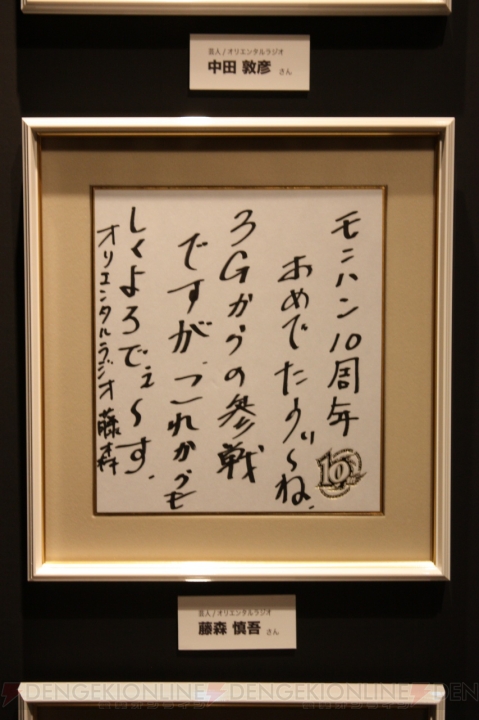 芸人/オリエンタルラジオ
中田 敦彦 さん
モニハン10周年
おめでたうり〜ね。
3Gからの参戦
ですが、これからも
しくよろでぇ〜す。
オリエンタルラジオ 藤森
10
芸人/オリエンタルラジオ
藤森 慎吾 さん
DENGEKIONLINE DENGEKIONLINE DEN